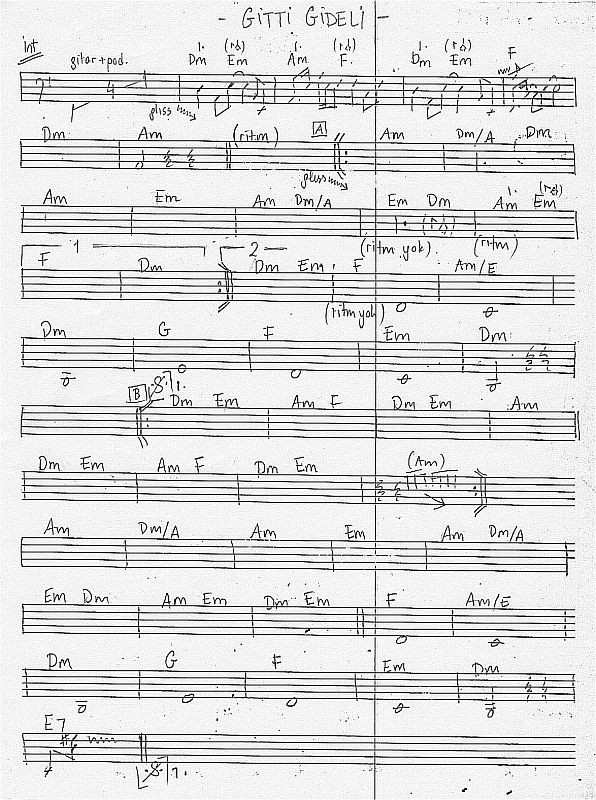 - GİTTİ GİDELİ -
int. gitar+pad. 4 1. Dm (rd) Em 1. Am (rd) F. 1. Dm (rd) Em F
gliss
Dm Am (ritm) A Am Dm/A Dm
gliss
Am Em Am Dm/A Em Dm 1. Am (rd) Em
1 2 (ritm yok) (ritm)
F Dm Dm Em F Am/E
(ritm yok)
Dm G F Em Dm
B 1. Dm Em Am F Dm Em Am
Dm Em Am F Dm Em (Am)
Am Dm/A Am Em Am Dm/A
Em Dm Am Em Dm Em F Am/E
Dm G F Em Dm
E7
4 1.